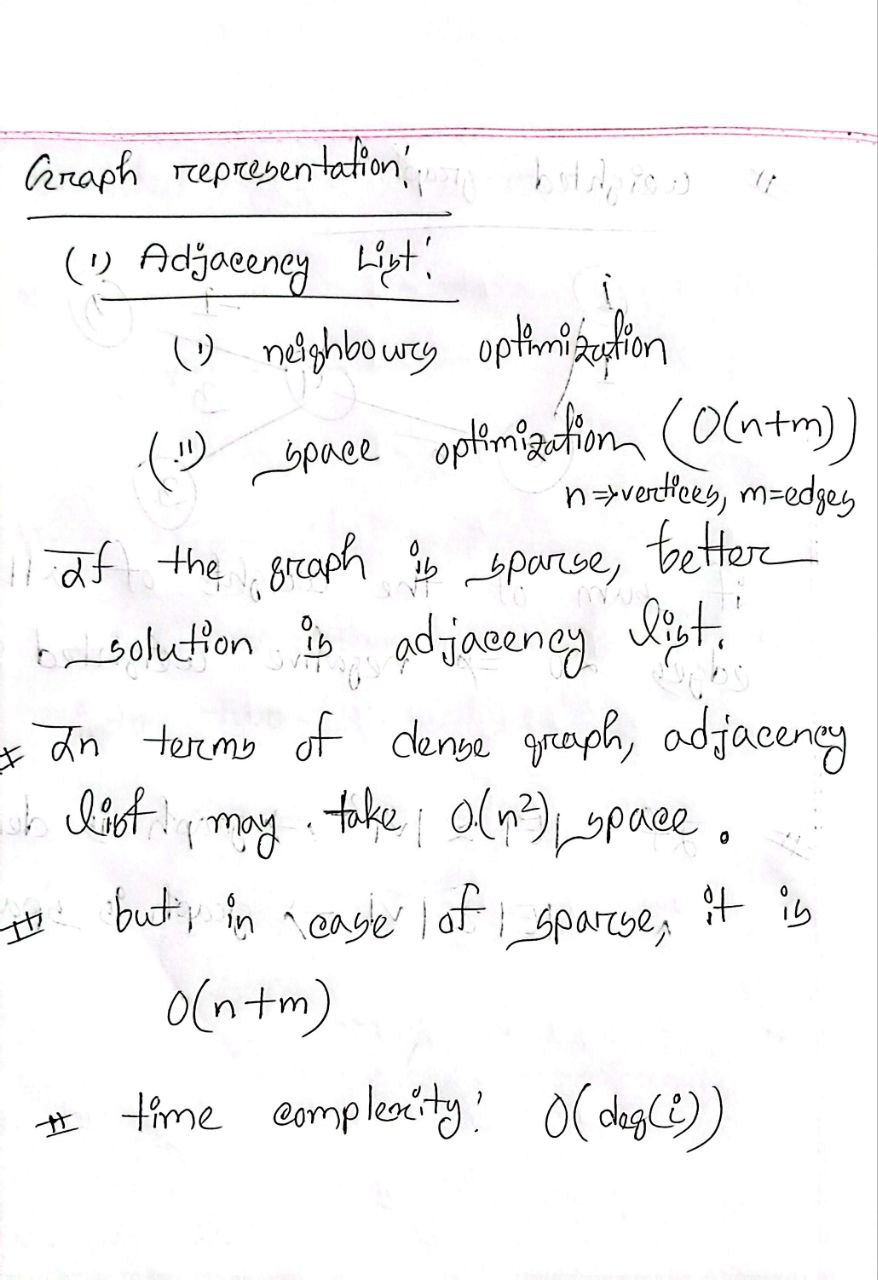 Graph representation:
(i) Adjacency List:
i
(i) neighbours optimization
(ii) space optimization (O(n+m))
n⇒vertices, m=edges
If the graph is sparse, better
solution is adjacency list.
# In terms of dense graph, adjacency
list may take O(n²) space.
# but in case of sparse, it is
O(n+m)
# time complexity: O(deg(i))